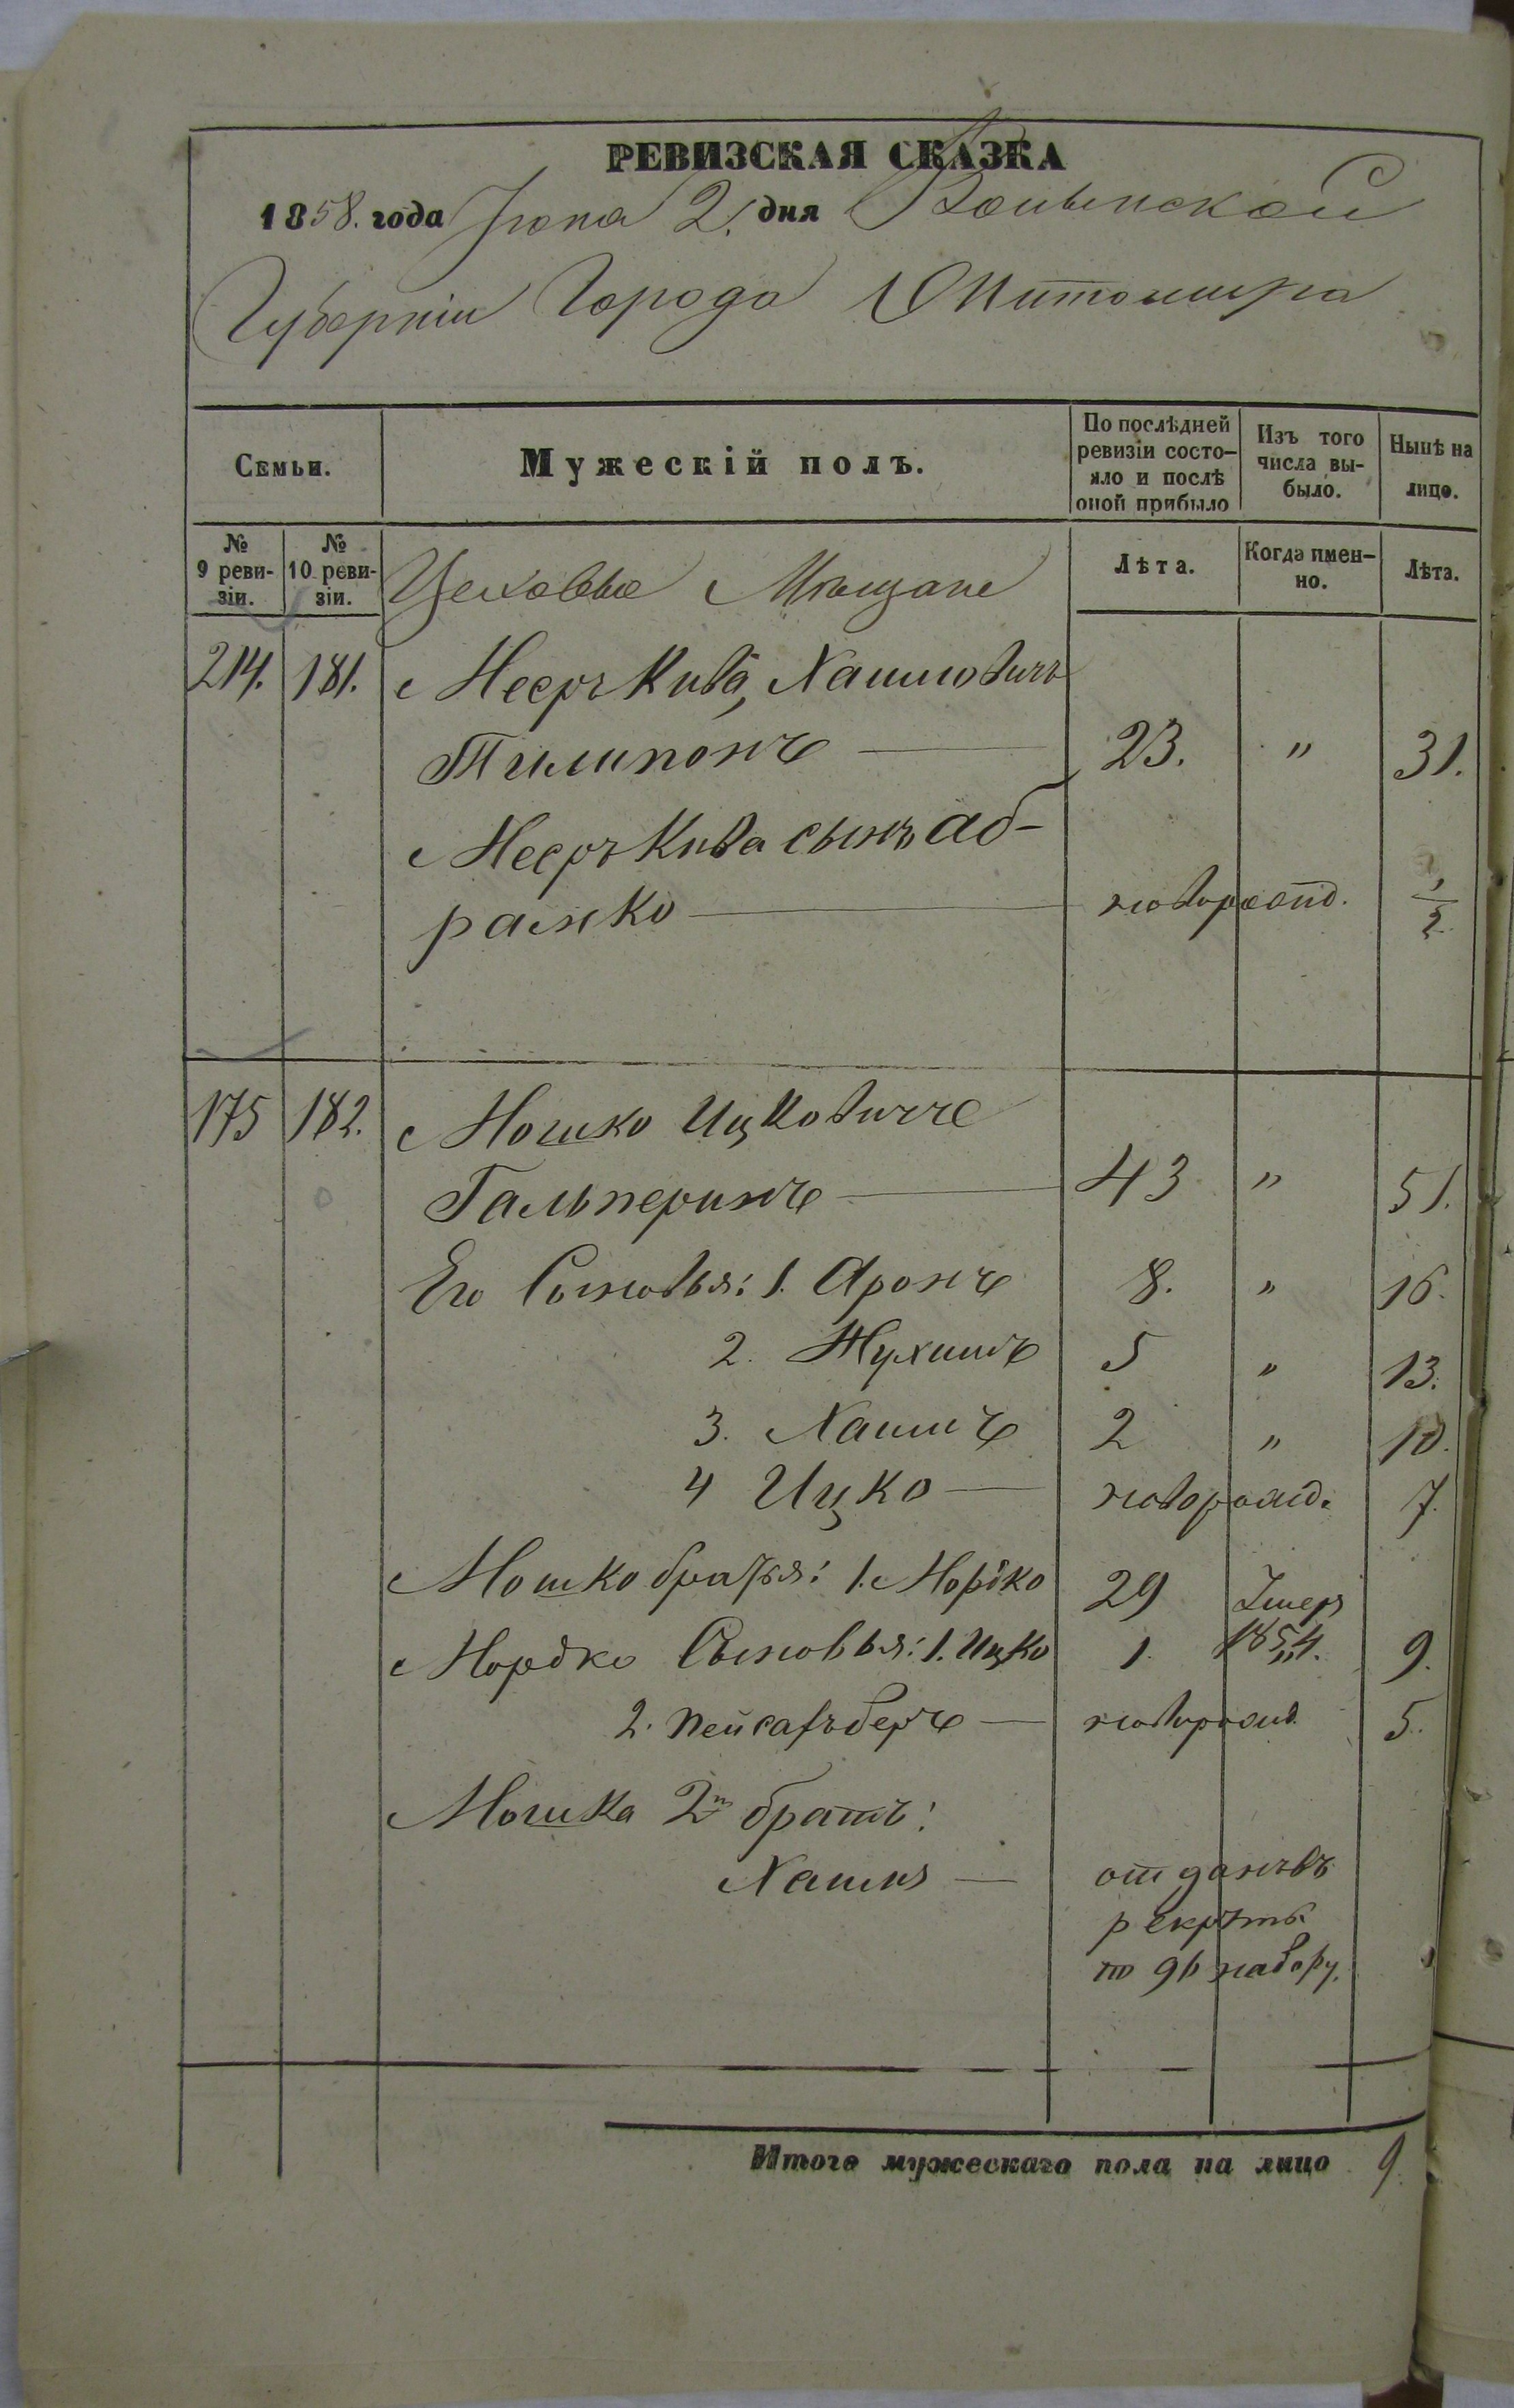 РЕВИЗСКАЯ СКАЗКА
1858. года Июня 2. дня Волынской
Губерніи Города Житомира
Семьи.
Мужескій полъ.
По послѣдней ревизіи состо-
яло и послѣ
оной прибыло
Изъ того
числа вы-
было.
Нынѣ на
лицо.
№
9 реви-
зіи.
№
10 реви-
зіи.
Цеховые Мѣщане
Лѣта.
Когда имен-
но.
Лѣта.
214. 181. Мееръ Кива, Хаимовичъ
23. " 31.
Мееръ Кива сынъ Аб-
рамко новорожд. 1/2
175 182. Мошко Ицковичъ
Гальперинъ 43 " 51.
Его Сыновья: 1. Аронъ 8. " 16.
2. 5 " 13.
3. Хаимъ 2 " 10.
4 Ицко новорожд. 7.
Мошко братья: 1. Мордко 29 Умеръ
Мордко Сыновья: 1. Ицко 1. 1854. 9.
2. Пейсахъ Беръ новорожд. 5.
Мошка 2й братъ:
Хаимъ отданъ въ
рекруты
по 9й набору.
Итого мужескаго пола на лицо 9.